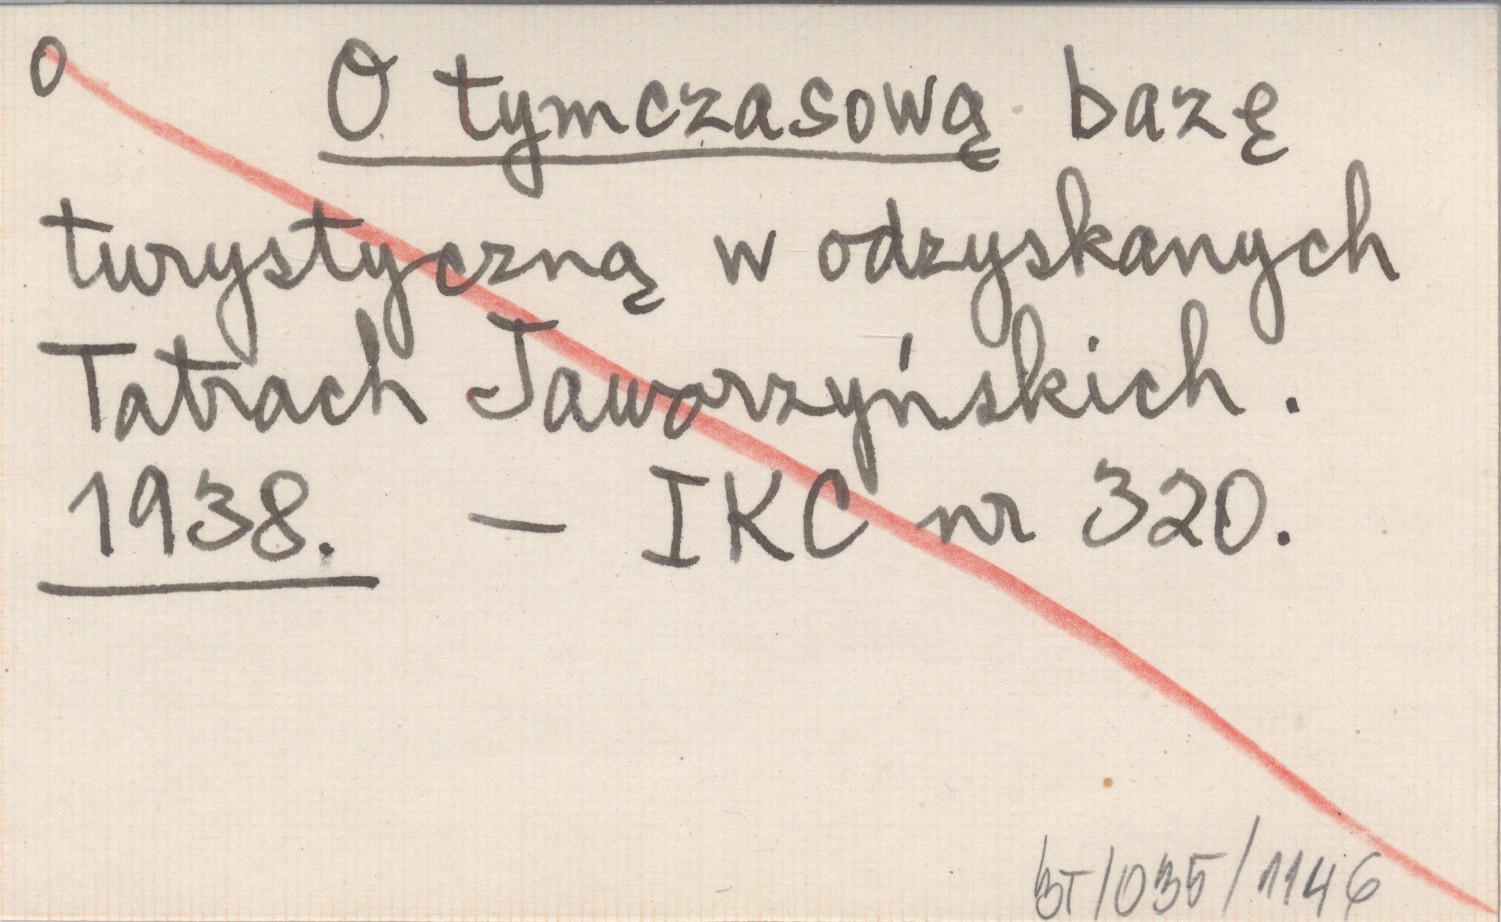 O O tymczasową bazę
turystyczną w odzyskanych
Tatrach Jaworzyńskich.
1938. — IKC nr 320.
BT/035/1146